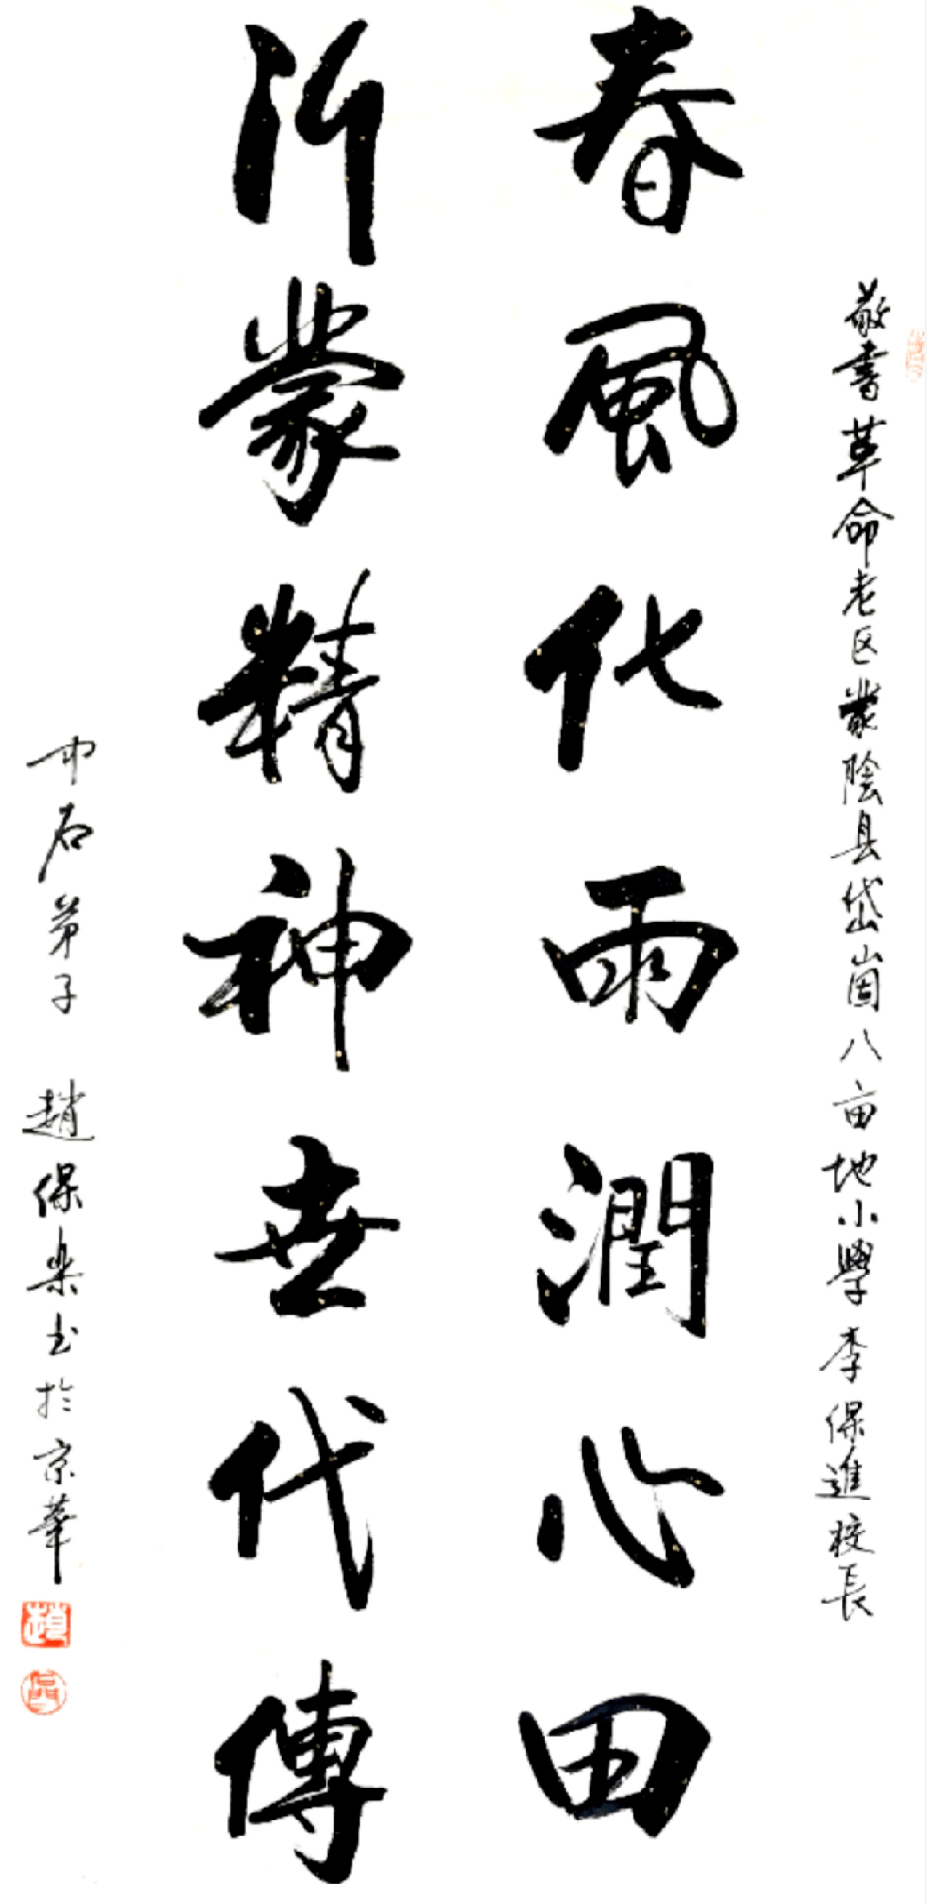 敬書革命老区蒙陰县岱崮八亩地小學李保進校長
春風化雨潤心田
沂蒙精神世代傳
中石弟子 趙保乐书於京華
趙